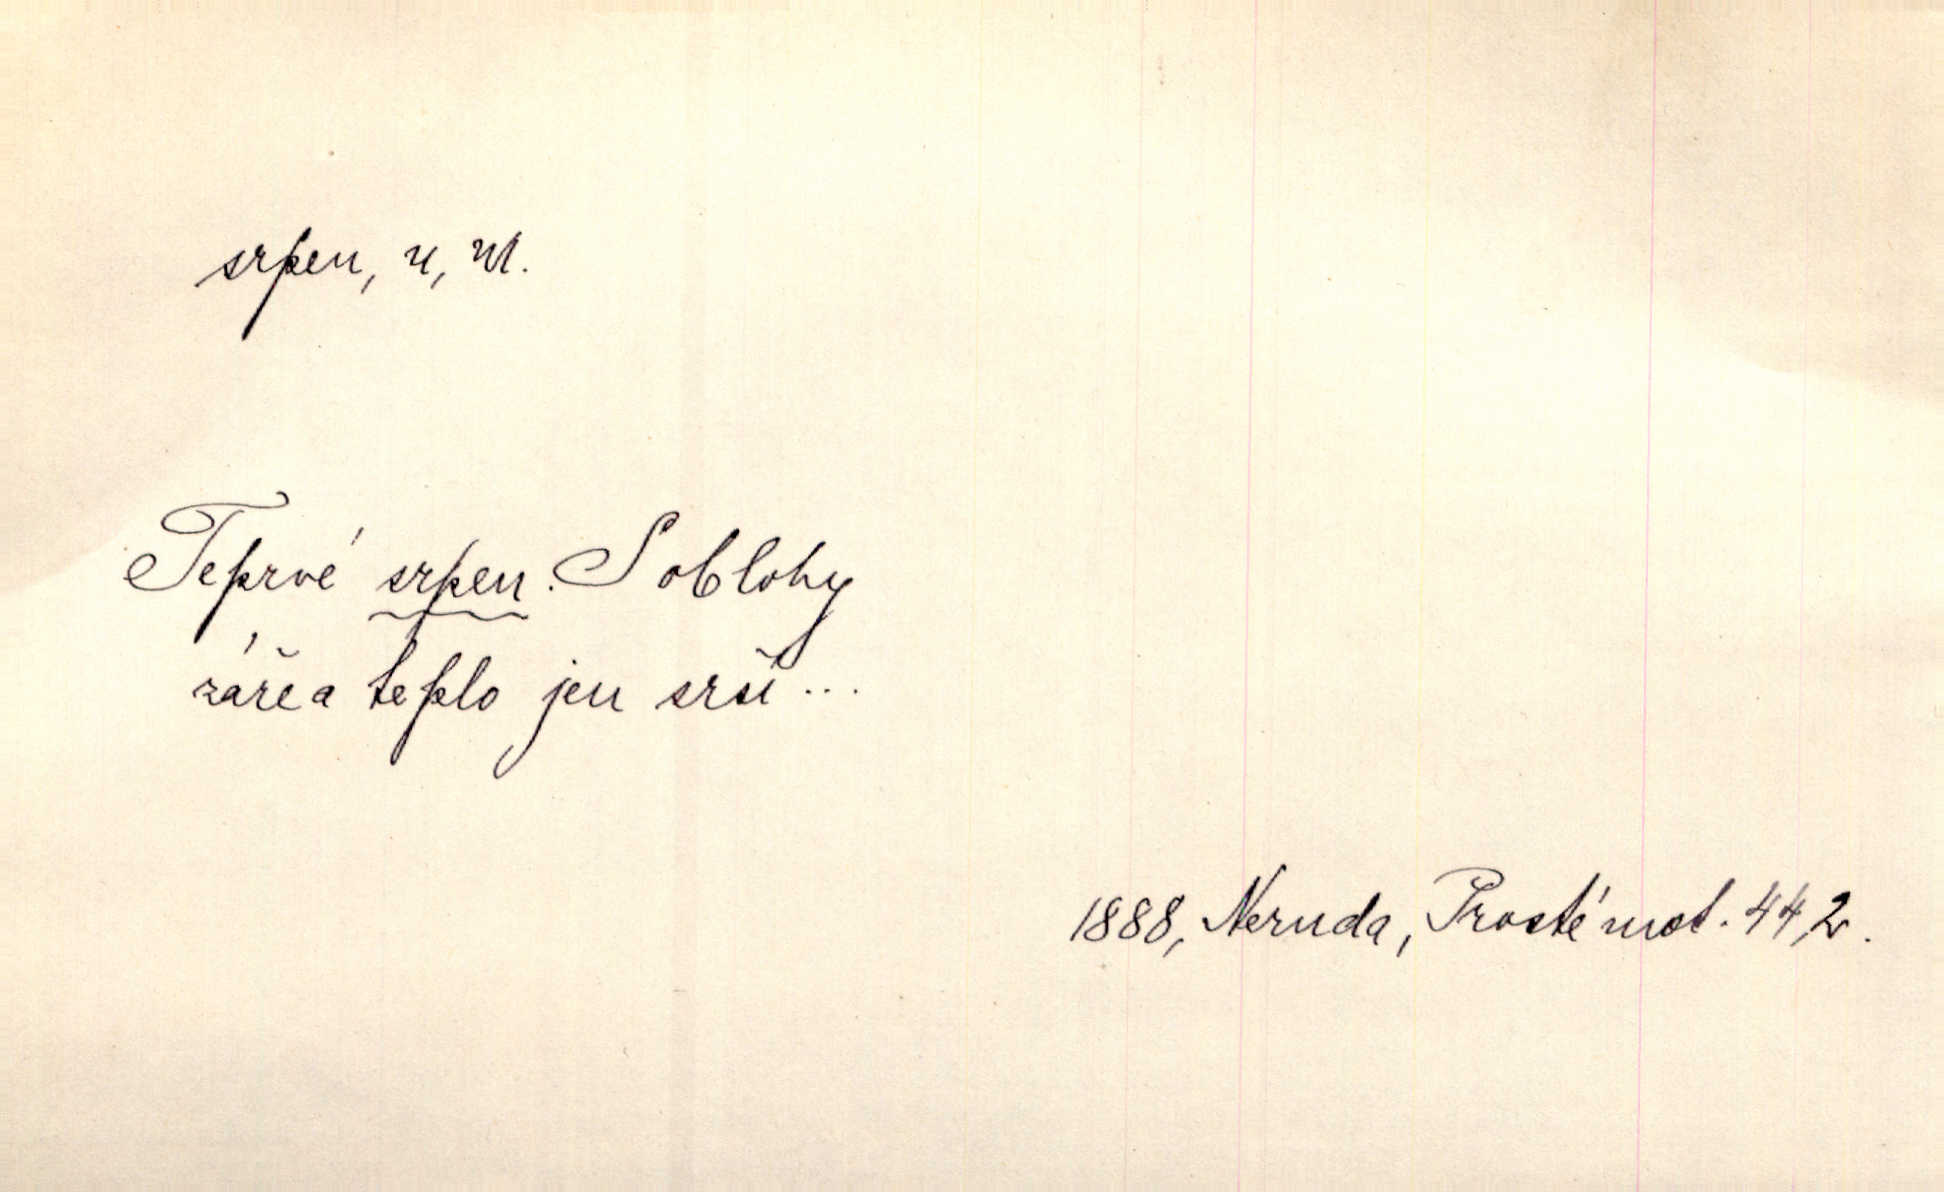 srpen, u, m.
Teprvé srpen. S oblohy
záře a teplo jen srší...
1888, Neruda, Prosté mot. 44,2.